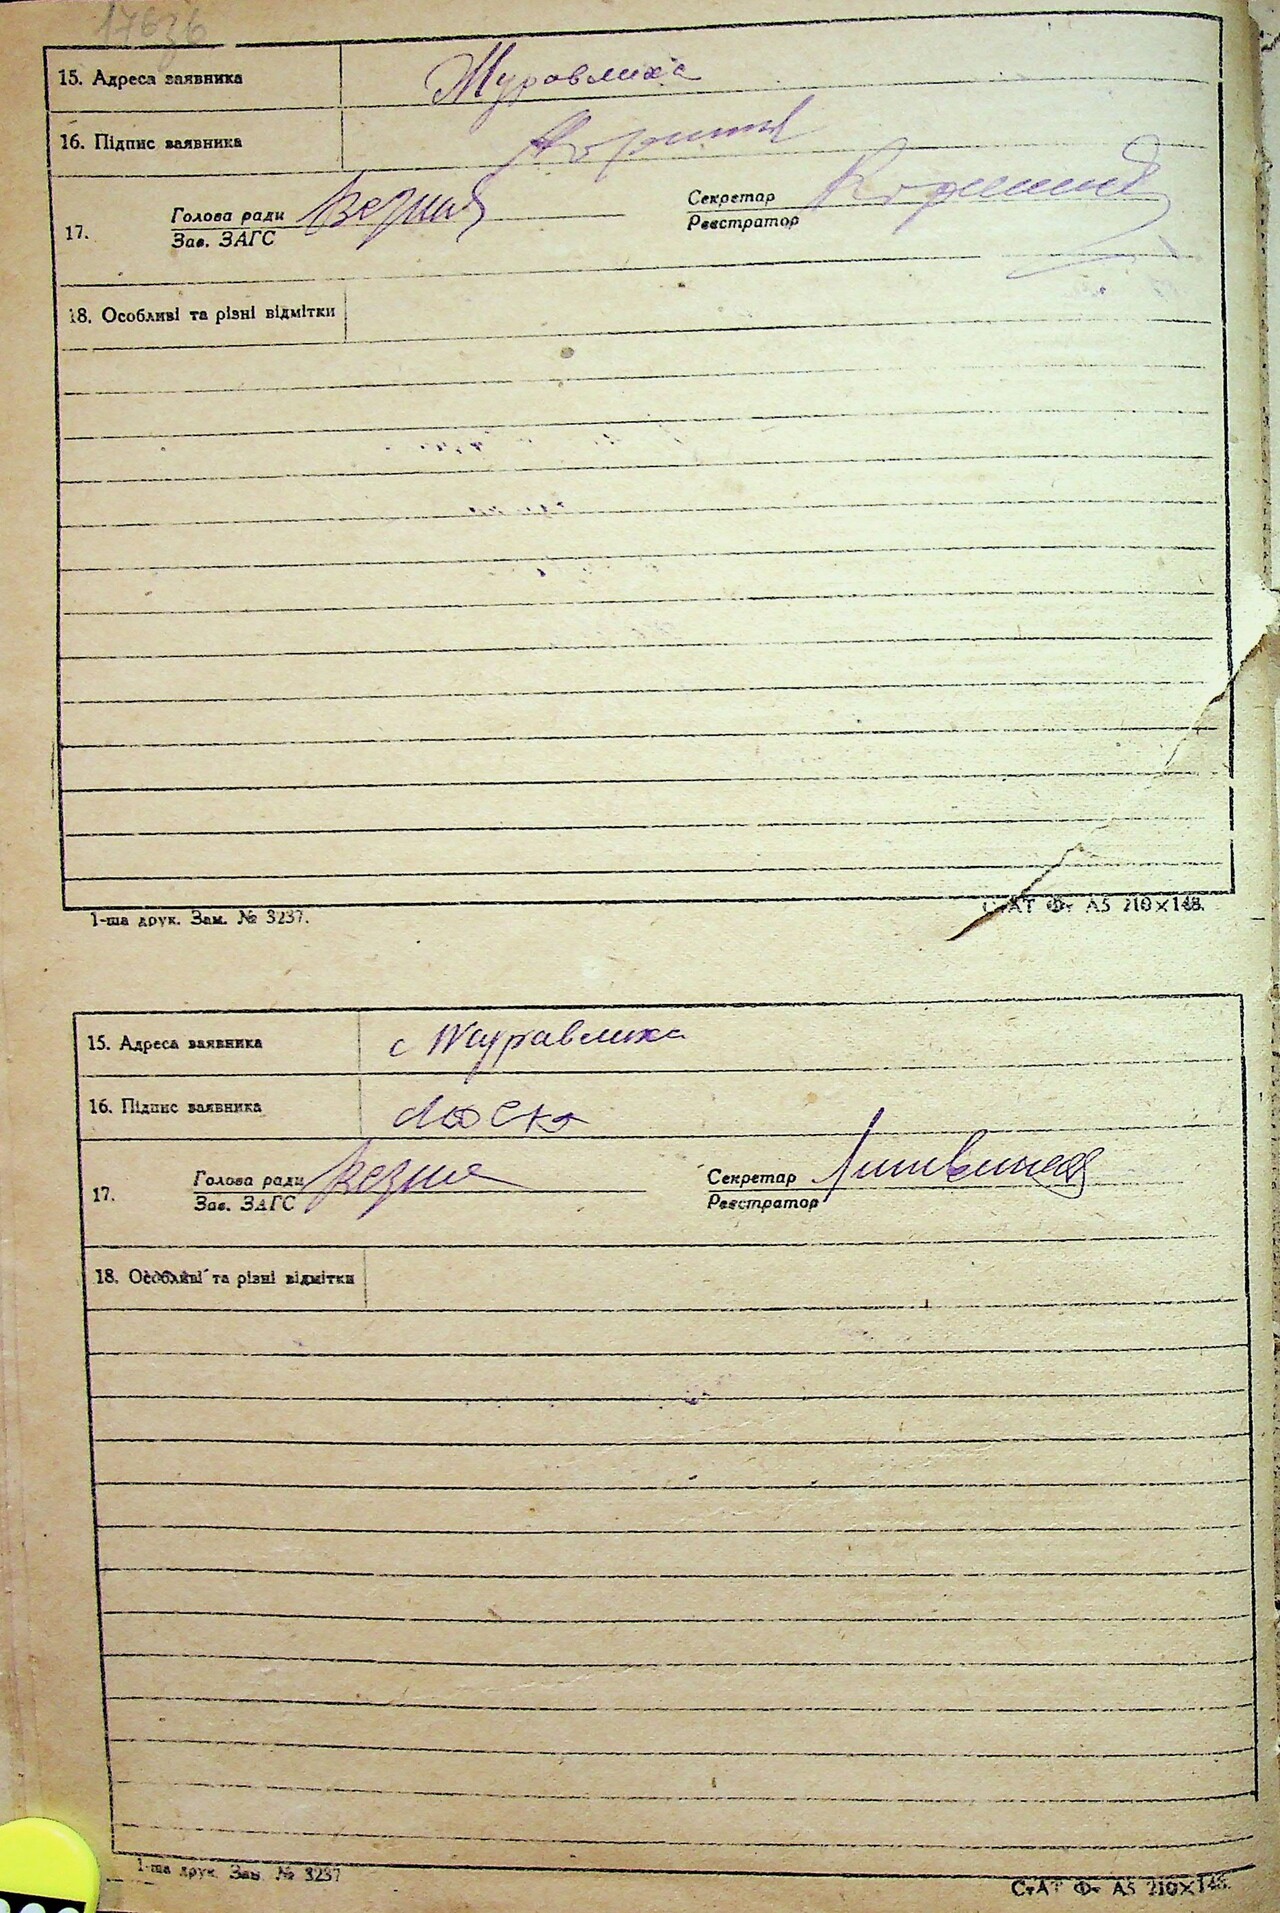 17636
15. Адреса заявника Журавлиха
16. Підпис заявника
17. Голова ради Секретар
Зав. ЗАГС Реєстратор
18. Особливі та різні відмітки
1-ша друк. Зам. № 3237. СтАТ Фт А5 210×148.
15. Адреса заявника с Журавлиха
16. Підпис заявника
17. Голова ради Секретар Литвинов
Зав. ЗАГС Реєстратор
18. Особливі та різні відмітки
1-ша друк. Зам. № 3237 СтАТ Фт А5 210×148.